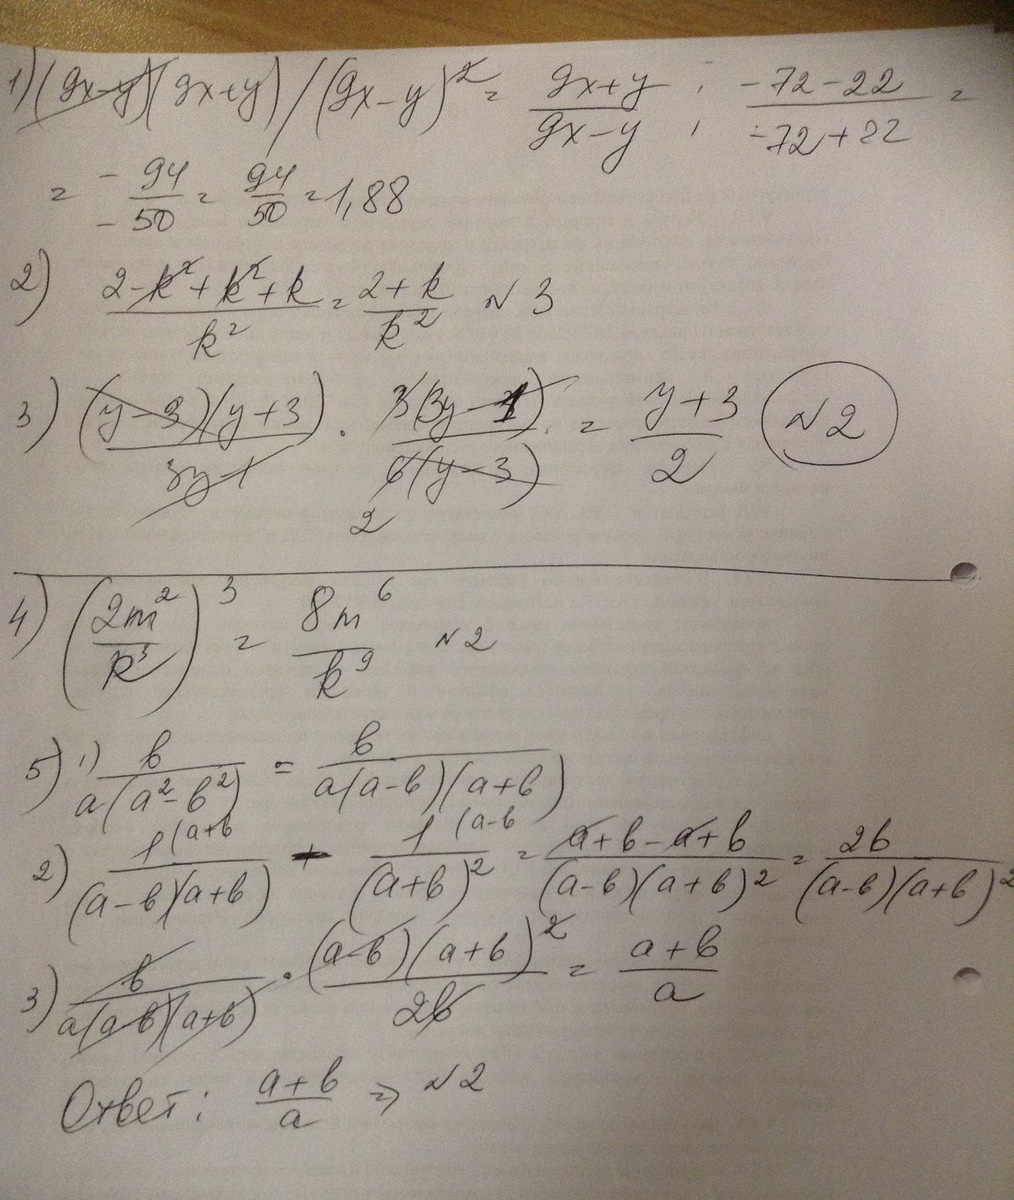 1) (9x-y)(9x+y)/(9x-y)² = (9x+y)/(9x-y) ; (-72-22)/(-72+22) =
= -94/-50 = 94/50 = 1,88
2) (2-k²+k²+k)/k² = (2+k)/k² №3
3) (y-3)(y+3)/(3y-1) · 3(3y-1)/6(y-3) 2 = (y+3)/2 №2
4) (2m²/k³)³ = 8m⁶/k⁹ №2
5) 1) b/a(a²-b²) = b/a(a-b)(a+b)
2) 1(a+b/(a-b)(a+b) - 1(a-b/(a+b)² = (a+b-a+b)/(a-b)(a+b)² = 2b/(a-b)(a+b)²
3) b/a(a-b)(a+b) · (a-b)(a+b)²/2b = (a+b)/a
Ответ: (a+b)/a => №2